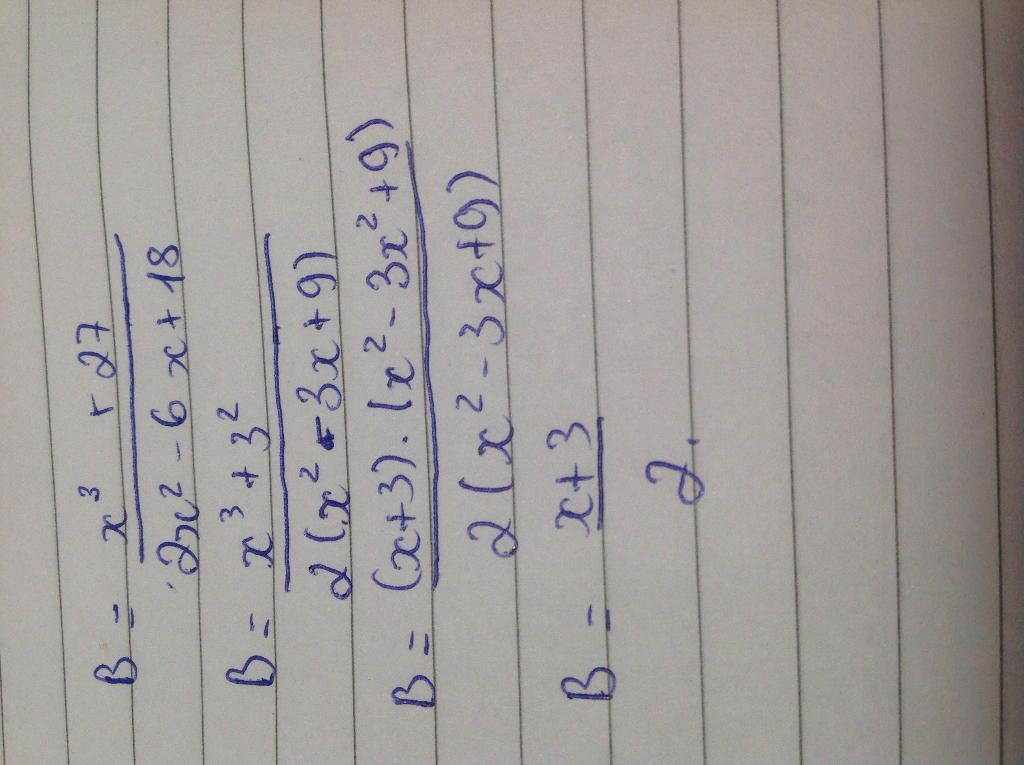 B = x³ + 27
2x² - 6x + 18
B = x³ + 3²
2(x² - 3x + 9)
B = (x+3).(x² - 3x² + 9)
2(x² - 3x + 9)
B = x+3
2.